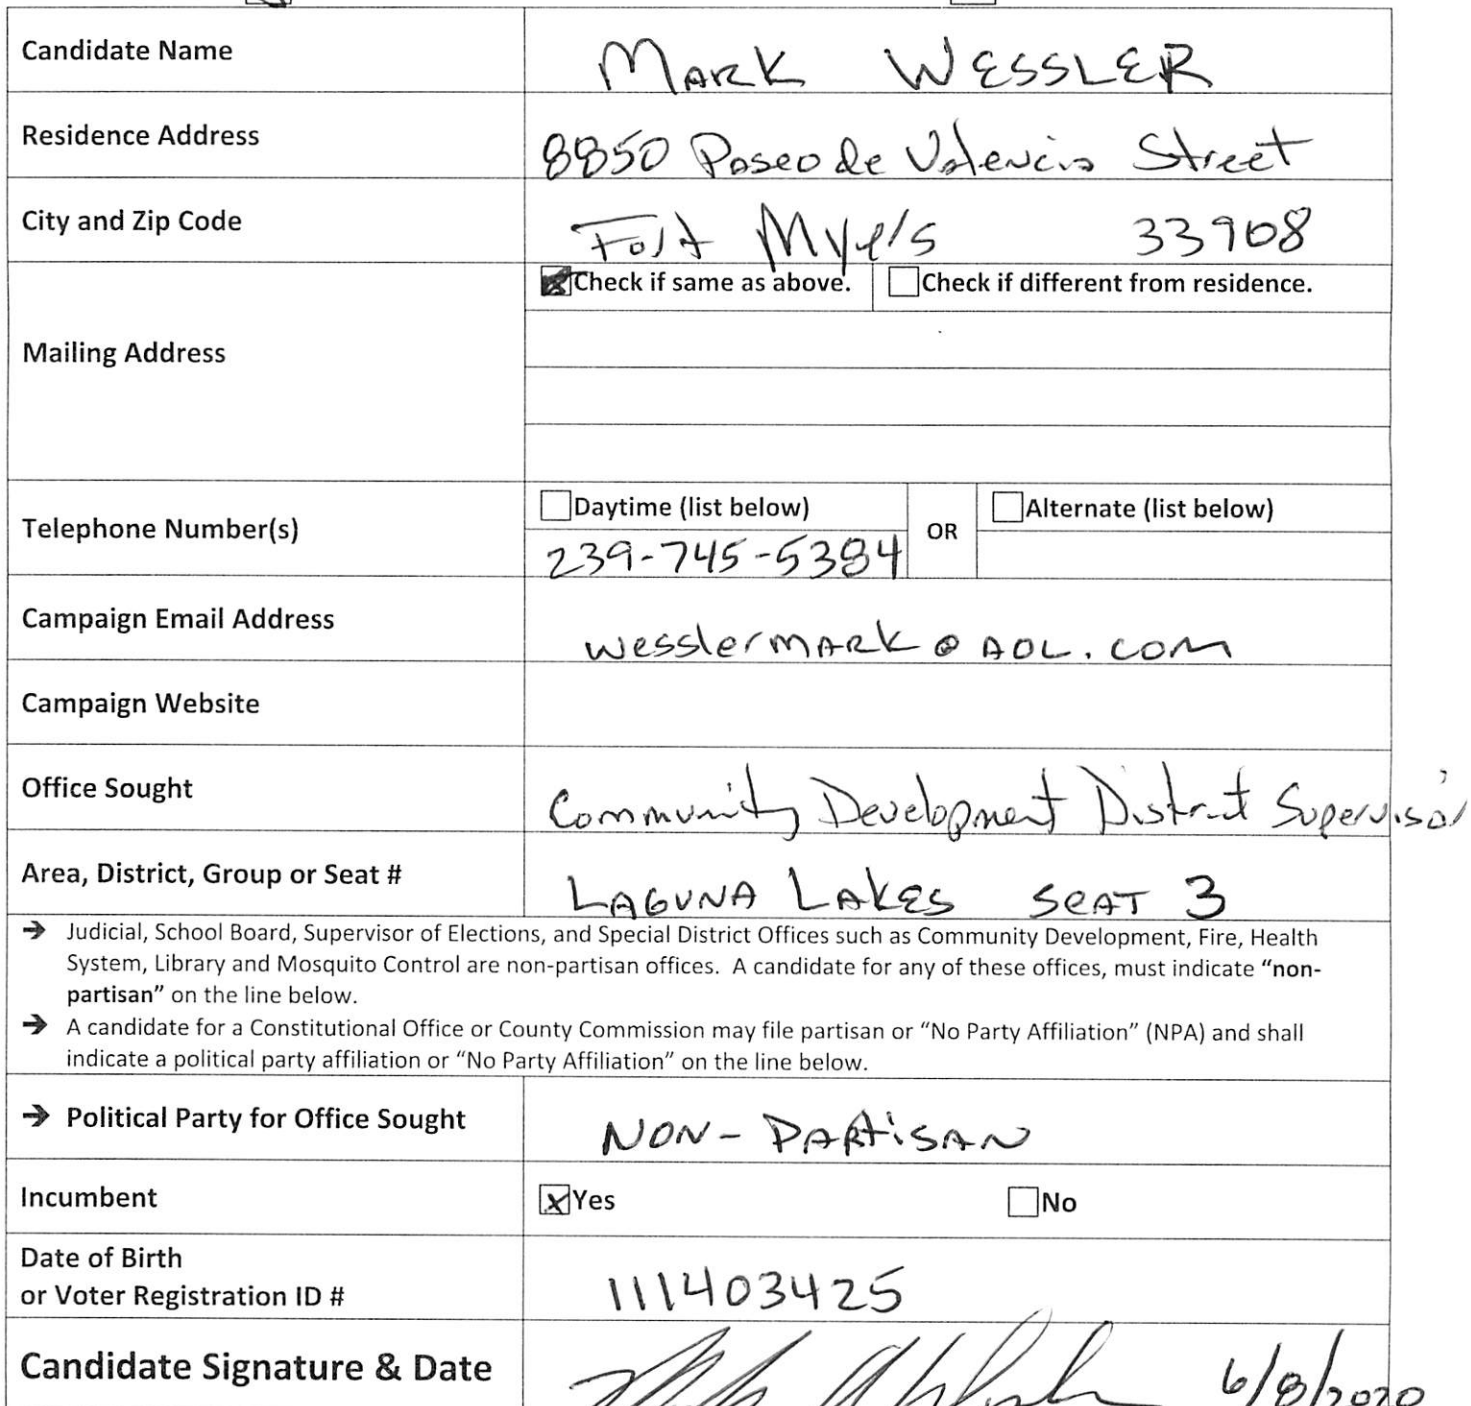 Candidate Name MARK WESSLER
Residence Address 8850 Paseo de Valencia Street
City and Zip Code Fort Myers 33908
Check if same as above. Check if different from residence.
Mailing Address
Daytime (list below) OR Alternate (list below)
Telephone Number(s) 239-745-5384
Campaign Email Address wesslermark@AOL.com
Campaign Website
Office Sought Community Development District Supervisor
Area, District, Group or Seat # LAGUNA LAKES SEAT 3
→ Judicial, School Board, Supervisor of Elections, and Special District Offices such as Community Development, Fire, Health
System, Library and Mosquito Control are non-partisan offices. A candidate for any of these offices, must indicate “non-
partisan” on the line below.
→ A candidate for a Constitutional Office or County Commission may file partisan or “No Party Affiliation” (NPA) and shall
indicate a political party affiliation or “No Party Affiliation” on the line below.
→ Political Party for Office Sought NON-PARTISAN
Incumbent Yes No
Date of Birth
or Voter Registration ID # 111403425
Candidate Signature & Date 6/8/2020